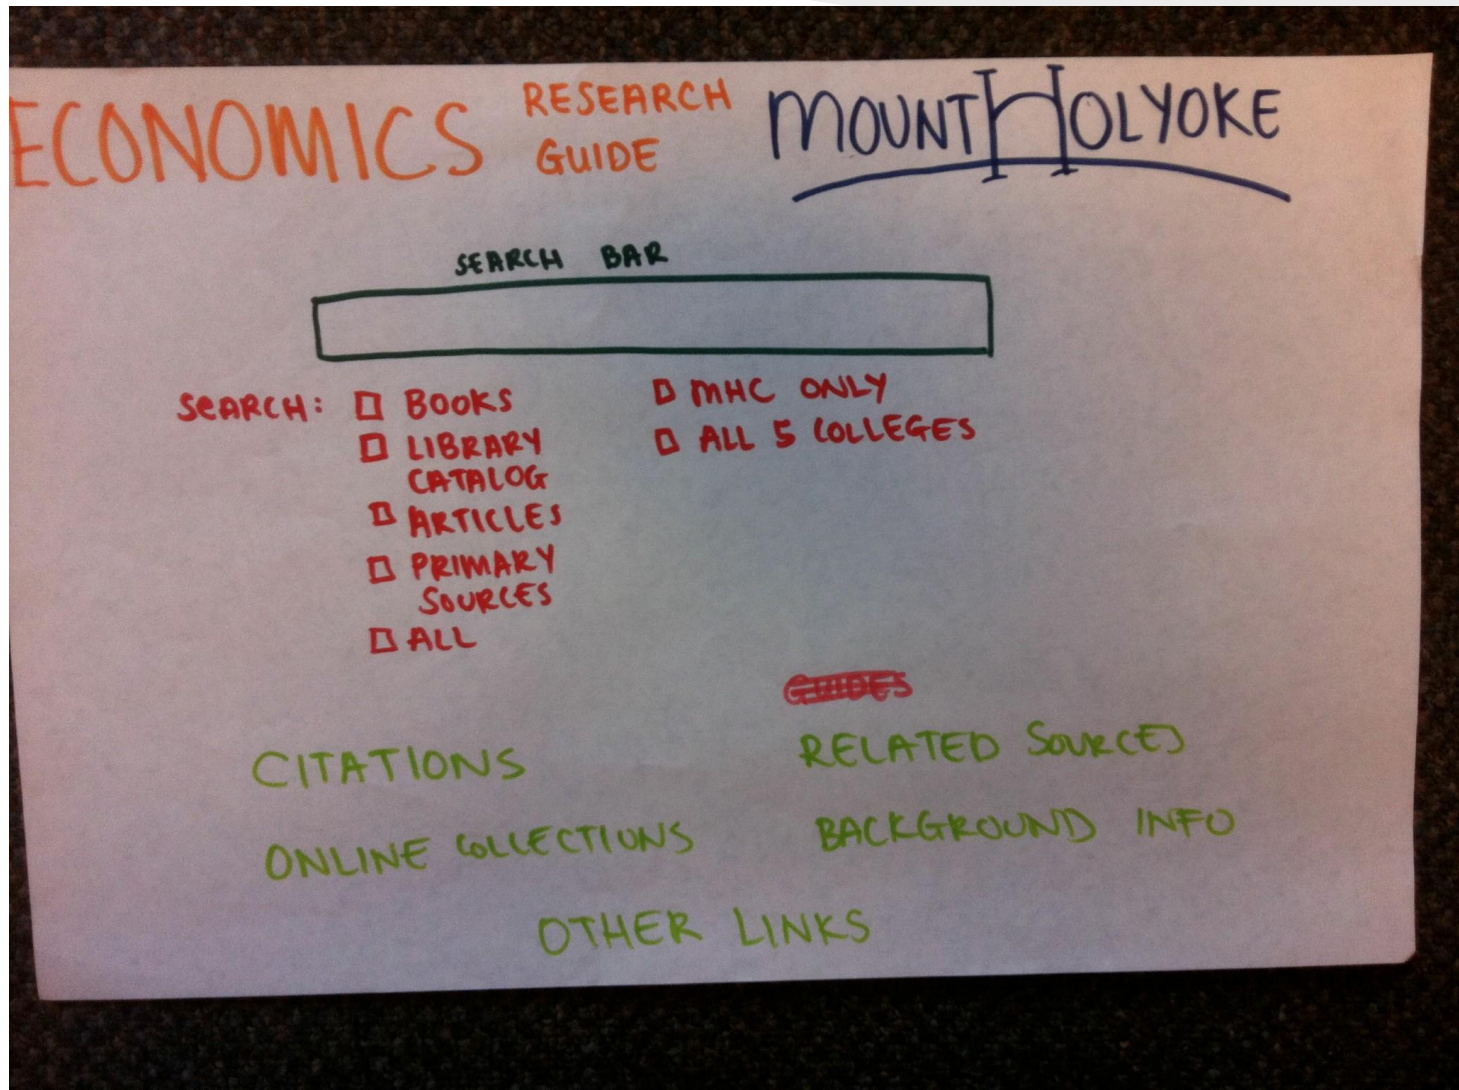 ECONOMICS RESEARCH GUIDE
MOUNT HOLYOKE
SEARCH BAR
SEARCH:
BOOKS
LIBRARY
CATALOG
ARTICLES
PRIMARY
SOURCES
ALL
MHC ONLY
ALL 5 COLLEGES
GUIDES
CITATIONS
RELATED SOURCES
ONLINE COLLECTIONS
BACKGROUND INFO
OTHER LINKS